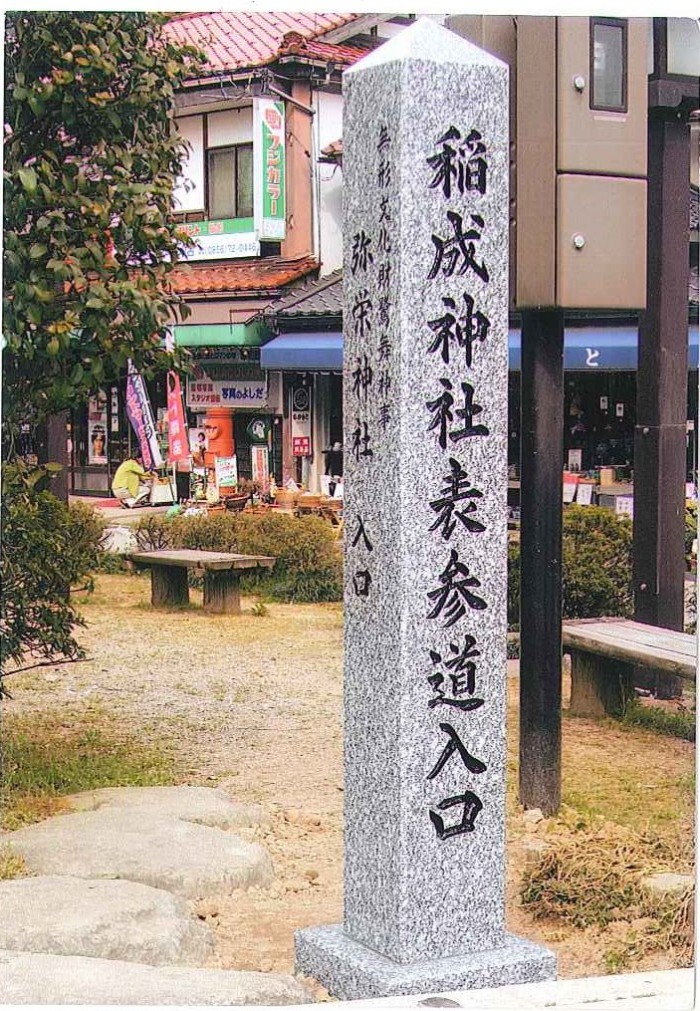 稲成神社表参道入口
無形文化財鷺舞神事
弥栄神社 入口
フジカラー
0856/72-0446
写真のよしだ
と